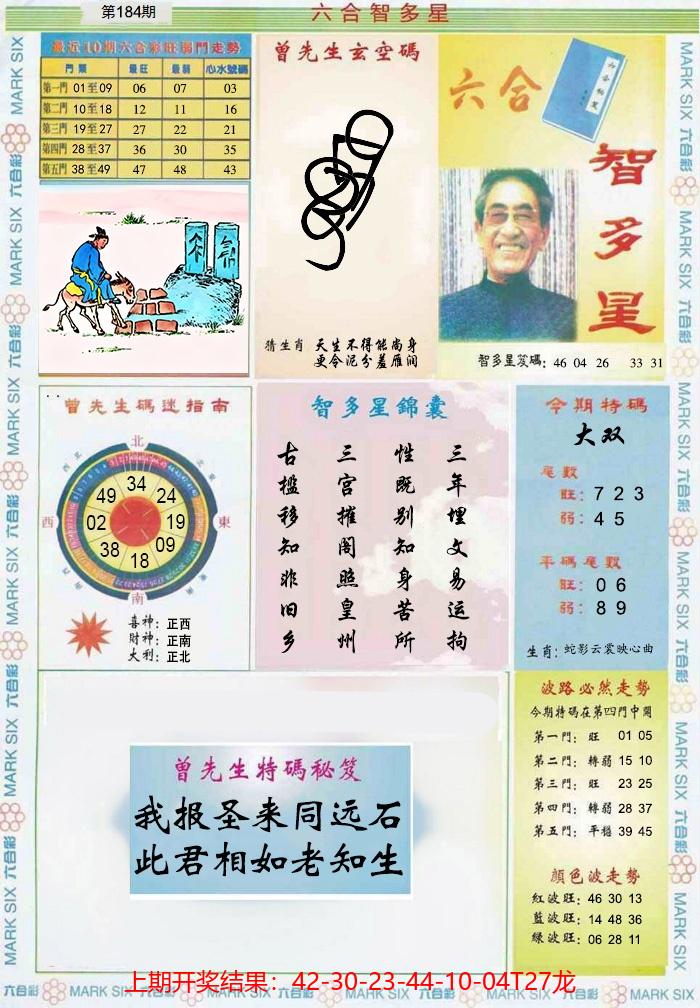 第184期
六合智多星
最近10期六合彩旺弱門走勢
門類 最旺 最弱 心水號碼
第一門 01至09 06 07 03
第二門 10至18 12 11 16
第三門 19至27 27 22 21
第四門 28至37 36 30 35
第五門 38至49 47 48 43
曾先生玄空碼
猜生肖 天生不得能尚身
更令泥分羞雁润
六合
智多星
智多星笈碼: 46 04 26 33 31
曾先生碼迷指南
北
西
東
南
34
24
19
09
18
38
02
49
喜神: 正西
財神: 正南
大利: 正北
智多星錦囊
三年埋文易运拘
性既别知身苦所
三宫摧阁照皇州
古槛移知非旧乡
今期特碼
大双
尾數
旺: 7 2 3
弱: 4 5
平碼尾數
旺: 0 6
弱: 8 9
生肖: 蛇影云裳映心曲
曾先生特碼秘笈
我报圣来同远石
此君相如老知生
波路必然走勢
今期特碼在第四門中開
第一門: 旺 01 05
第二門: 轉弱 15 10
第三門: 旺 23 25
第四門: 轉弱 28 37
第五門: 平穩 39 45
顏色波走勢
紅波旺: 46 30 13
藍波旺: 14 48 36
綠波旺: 06 28 11
上期开奖结果: 42-30-23-44-10-04T27龙
六合彩 MARK SIX 六合彩 MARK SIX 六合彩 MARK SIX 六合彩 MARK SIX 六合彩